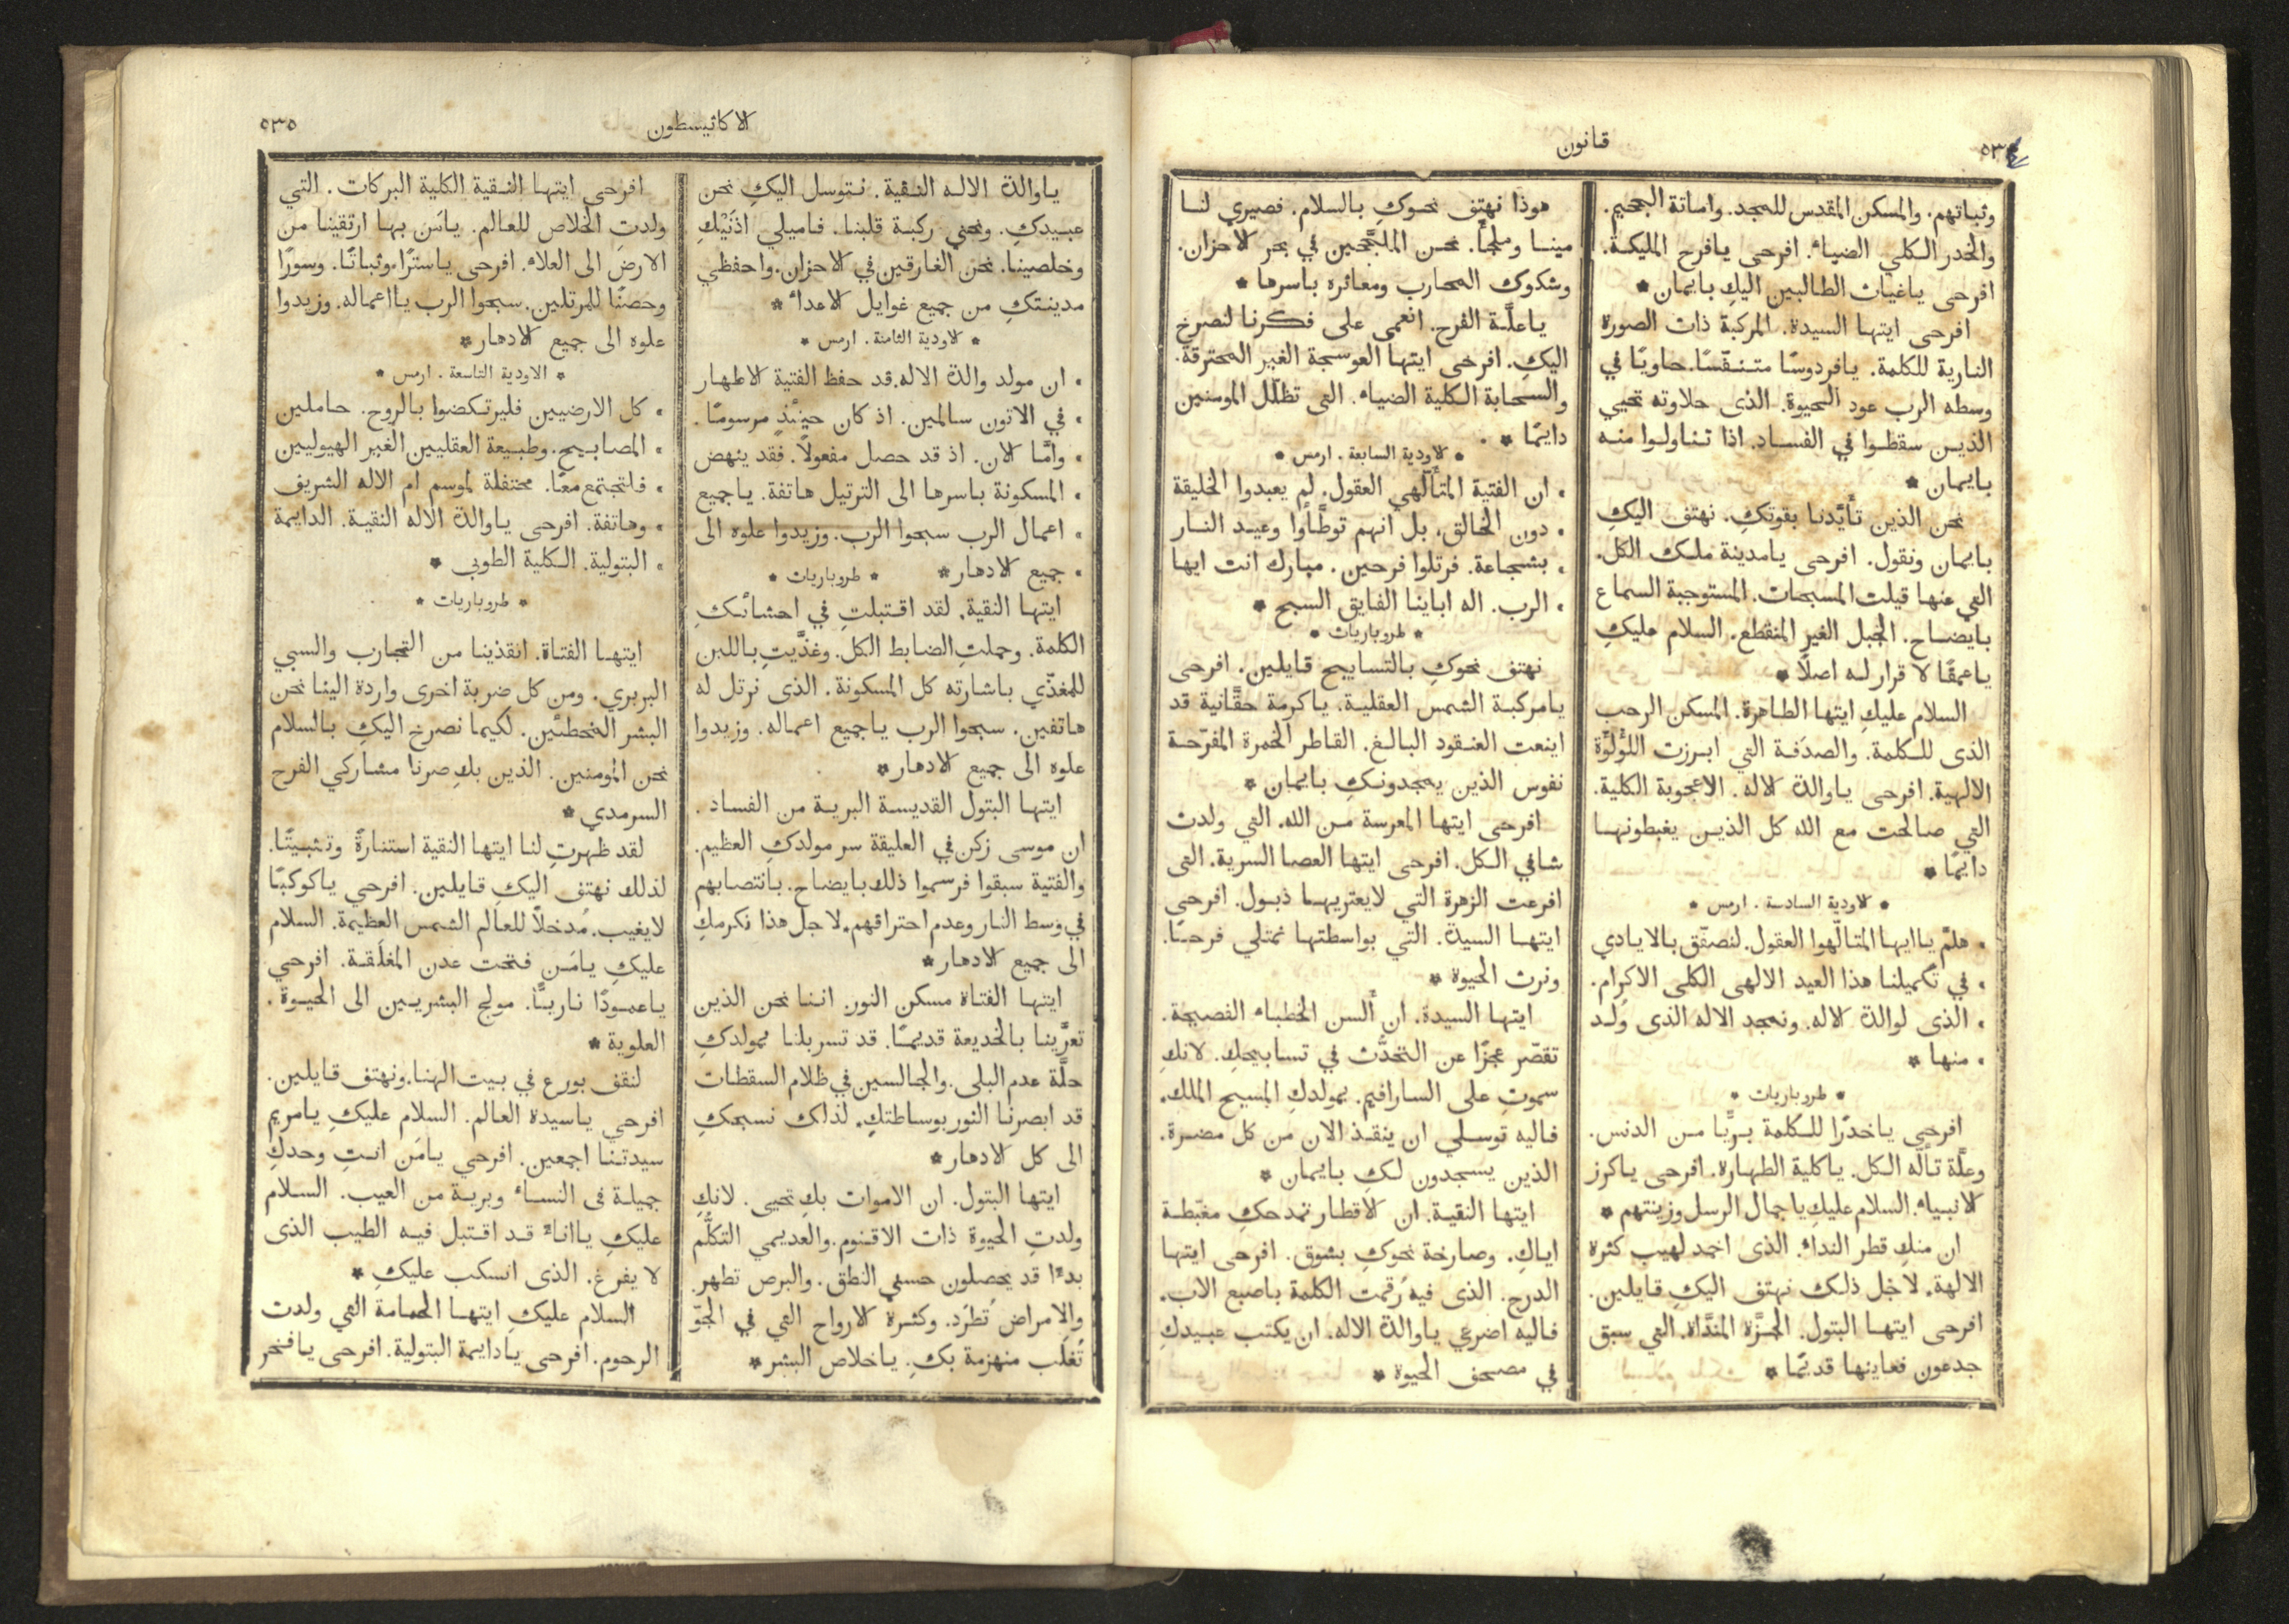 قانون
وثباتهم. والمسكن المقدس للمجد. واماتة الجحيم.
والخدر الكلي الضياء. افرحى يافرح المليكة.
افرحى ياغياث الطالبين اليكِ بايمان *
افرحى ايتها السيدة. المركبة ذات الصورة
النارية للكلمة. يافردوسًا متنفّسًا. حاويًا في
وسطه الرب عود الحيوة. الذى حلاوته تحيي
الذين سقطوا في الفساد. اذا تناولوا منه
بايمان *
نحن الذين تأيّدنا بقوتكِ. نهتف اليكِ
بايمان ونقول. افرحى يامدينة ملك الكل.
التي عنها قيلت المسبحات. المستوجبة السماع
بايضاح. الجبل الغير المنقطع. السلام عليكِ
ياعمقًا لا قرار له اصلًا *
السلام عليكِ ايتها الطاهرة. المسكن الرحب
الذى للكلمة. والصدَفة التي ابرزت اللؤلوَّة
الالهية. افرحى ياوالدة لاله. الاعجوبة الكلية.
التي صالحت مع الله كل الذين يغبطونها
دايمًا *
* لاودية السادسة. ارمس *
• هلمّ ياايها المتالّهوا العقول. لنصفّق بالايادي
• في تكميلنا هذا العيد الالهى الكلى الاكرام.
• الذى لوالدة لاله. ونمجد الاله الذى وُلد
• منها *
* طروباريات *
افرحى ياخدرًا للكلمة بريًّا من الدنس.
وعلَّة تالّه الكل. ياكلية الطهارة. افرحى ياكرز
لانبياء. السلام عليكِ ياجمال الرسل وزينتهم *
ان منكِ قطر الندا. الذى اخمد لهيب كثرة
الالهة. لاجل ذلك نهتف اليكِ قايلين.
افرحى ايتها البتول. الجزَّة المندَّاة. التي سبق
جدعون فعاينها قديمًا *
هوذا نهتف نحوكِ بالسلام. فصيري لنا
مينا وملجأً. نحن الملجَّجين في بحر لاحزان.
وشكوك المحارب ومعاثره باسرها *
ياعلَّة الفرح. انعمى على فكرنا لنصرخ
اليكِ. افرحى ايتها العوسجة الغير المحترقة.
والسحابة الكلية الضياء. التى تظلّل المومنين
دايمًا *
* لاودية السابعة. ارمس *
• ان الفتية المتألّهي العقول. لم يعبدوا الخليقة
• دون الخالق. بل انهم توطَّأوا وعيد النار
• بشجاعة. فرتلوا فرحين. مبارك انت ايها
• الرب. اله اباينا الفايق السبح *
* طروباريات *
نهتف نحوكِ بالتسابيح قايلين. افرحى
يامركبة الشمس العقلية. ياكرمة حقَّانية قد
اينعت العنقود البالغ. القاطر الخمرة المفرّحة
نفوس الذين يمجدونكِ بايمان *
افرحى ايتها المعرسة من الله. التي ولدت
شافي الكل. افرحى ايتها العصا السرية. التى
افرعت الزهرة التي لايعتريها ذبول. افرحى
ايتها السيدة. التي بواسطتها نمتلي فرحًا.
ونرث الحيوة *
ايتها السيدة. ان ألسن الخطباء الفصيحة.
تقصّر عجزًا عن التحدُّث في تسابيحكِ. لانكِ
سموتِ على السارافيم. بمولدكِ المسيح الملك.
فاليه توسلي ان ينقذ الان من كل مضرة.
الذين يسجدون لكِ بايمان *
ايتها النقية. ان لاقطار تمدحكِ مغبّطة
اياكِ. وصارخة نحوكِ بشوق. افرحى ايتها
الدرج. الذى فيه رُقمت الكلمة باصبع الاب.
فاليه اضرعي ياوالدة الاله. ان يكتب عبيدكِ
في مصحف الحيوة *
الاكاثيسطون
٥٣٥
ياوالدة الاله النقية. نتوسل اليكِ نحن
عبيدكِ. ونحني ركبة قلبنا. فاميلي اذنَيْكِ
وخلصينا. نحن الغارقين في لاحزان. واحفظي
مدينتكِ من جميع غوايل لاعداء *
* لاودية الثامنة. ارمس *
• ان مولد والدة الاله. قد حفظ الفتية لاطهار
• في الاتون سالمين. اذ كان حينئذٍ مرسومًا.
• وامَّا لان. اذ قد حصل مفعولًا. فقد ينهض
• المسكونة باسرها الى الترتيل هاتفة. ياجميع
• اعمال الرب سبحوا الرب. وزيدوا علوه الى
• جميع لادهار * * طروباريات *
ايتها النقية. لقد اقتبلتِ في احشائكِ
الكلمة. وحملتِ الضابط الكل. وغذَّيتِ باللبن
للمغذّي باشارته كل المسكونة. الذى نرتل له
هاتفين. سبحوا الرب ياجميع اعماله. وزيدوا
علوه الى جميع لادهار *
ايتها البتول القديسة البرية من الفساد.
ان موسى زكن في العليقة سر مولدكِ العظيم.
والفتية سبقوا فرسموا ذلك بايضاح. بانتصابهم
في وسط النار وعدم احتراقهم. لاجل هذا نكرمكِ
الى جميع لادهار *
ايتها الفتاة مسكن النور. اننا نحن الذين
تعرَّينا بالخديعة قديمًا. قد تسربلنا بمولدكِ
حلَّة عدم البلى. والجالسين في ظلام السقطات
قد ابصرنا النور بوساطتكِ. لذلك نسبحكِ
الى كل لادهار *
ايتها البتول. ان الاموات بكِ تحيى. لانكِ
ولدتِ الحيوة ذات الاقنوم. والعديمي التكلُّم
بدءًا قد يحصلون حسني النطق. والبرص تطهر.
والامراض تُطرَد. وكثرة لارواح التي في الجوّ
تُغلَب منهزمة بكِ. ياخلاص البشر *
افرحى ايتها النقية الكلية البركات. التي
ولدتِ الخلاص للعالم. يامَن بها ارتقينا من
الارض الى العلاء. افرحى ياسترًا وثباتًا. وسورًا
وحصنًا للمرتلين. سبحوا الرب يااعماله. وزيدوا
علوه الى جميع لادهار *
* الاودية التاسعة. ارمس *
• كل الارضيين فليرتكضوا بالروح. حاملين
• المصابيح. وطبيعة العقليين الغير الهيوليين
• فلتجتمع معًا. محتفلة لموسم ام الاله الشريف
• وهاتفة. افرحى ياوالدة الاله النقية. الدايمة
• البتولية. الكلية الطوبى *
* طروباريات *
ايتها الفتاة. انقذينا من التجارب والسبي
البربري. ومن كل ضربة اخرى واردة الينا نحن
البشر المخطئين. لكيما نصرخ اليكِ بالسلام
نحن المومنين. الذين بكِ صرنا مشاركي الفرح
السرمدي *
لقد ظهرتِ لنا ايتها النقية استنارةً وتثبيتًا.
لذلك نهتف اليكِ قايلين. افرحي ياكوكبًا
لايغيب. مُدخلًا للعالم الشمس العظيمة. السلام
عليكِ يامَن فتحت عدن المغلَقة. افرحي
ياعمودًا ناريًّا. مولج البشريين الى الحيوة.
العلوية *
لنقف بورع في بيت الهنا. ونهتف قايلين.
افرحي ياسيدة العالم. السلام عليكِ يامريم
سيدتنا اجمعين. افرحي يامَن انتِ وحدكِ
جميلة فى النساء وبرية من العيب. السلام
عليكِ ياانآء قد اقتبل فيه الطيب الذى
لا يفرغ. الذى انسكب عليكِ *
السلام عليكِ ايتها الحمامة التي ولدت
الرحوم. افرحى يادايمة البتولية. افرحى يافخر